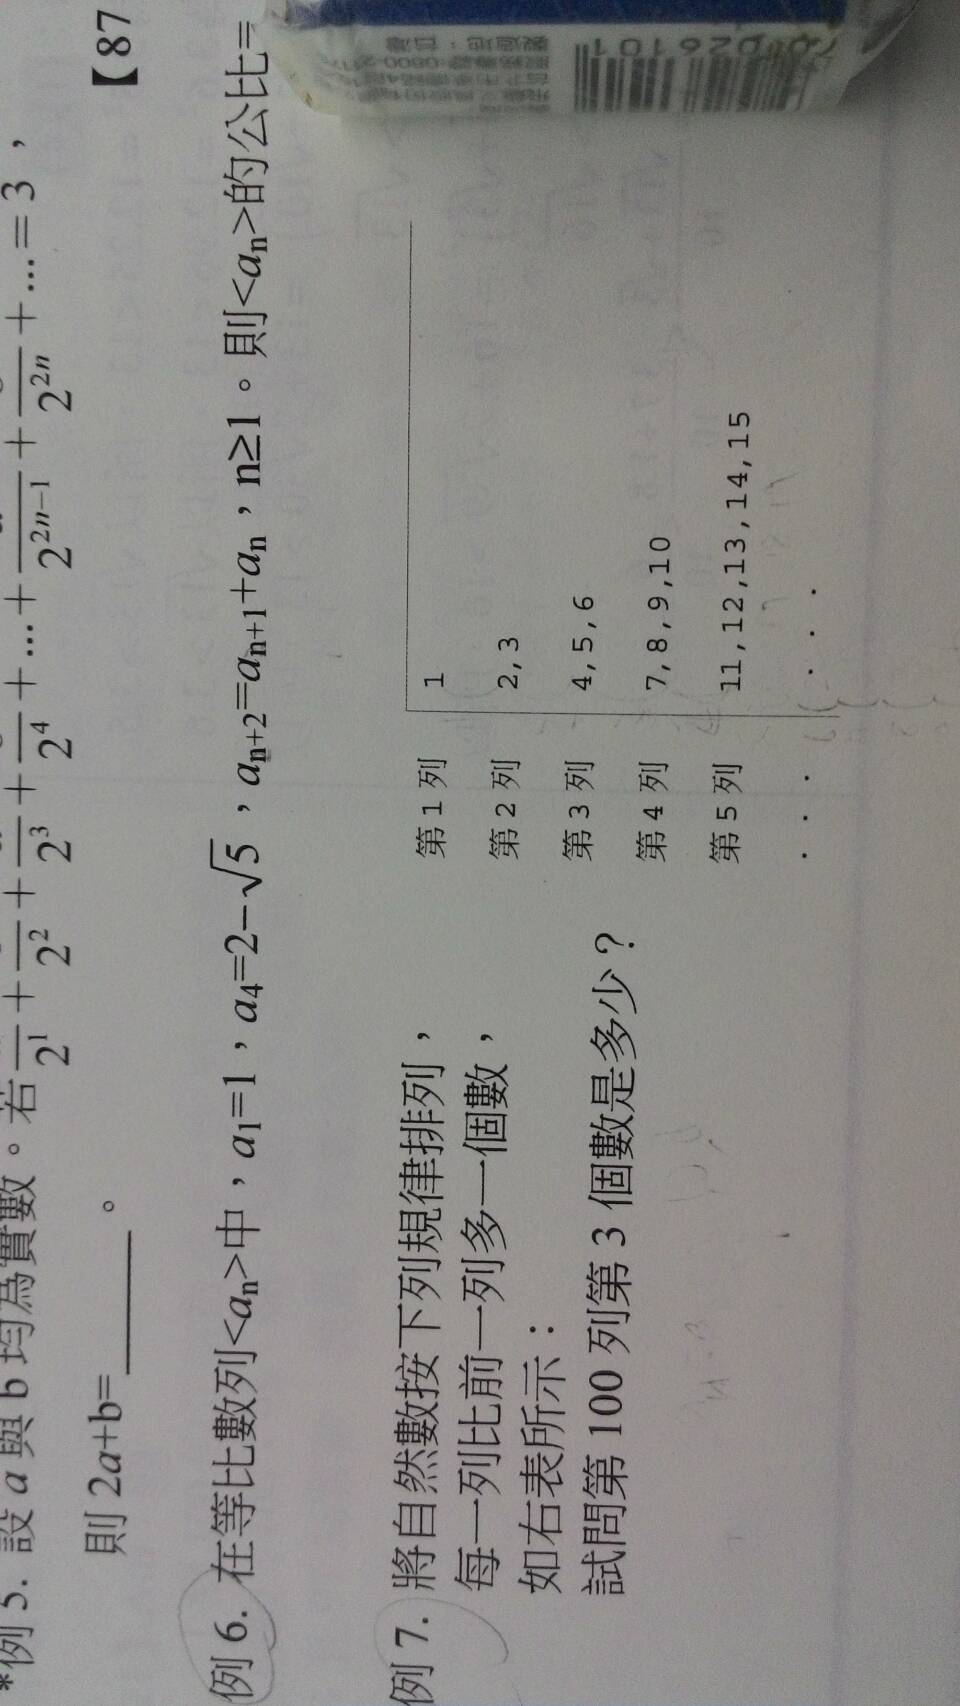 *例 5. 設 a 與 b 均為實數。若 —/2^1 + —/2^2 + —/2^3 + —/2^4 + ... + —/2^{2n-1} + —/2^{2n} + ... = 3，
則 2a+b=______。 【87
例 6. 在等比數列<a_n>中，a_1=1，a_4=2-√5，a_{n+2}=a_{n+1}+a_n，n≥1。則<a_n>的公比=
例 7. 將自然數按下列規律排列，
每一列比前一列多一個數，
如右表所示：
試問第 100 列第 3 個數是多少？
第 1 列 1
第 2 列 2,3
第 3 列 4,5,6
第 4 列 7,8,9,10
第 5 列 11,12,13,14,15
. . . . . .
026101